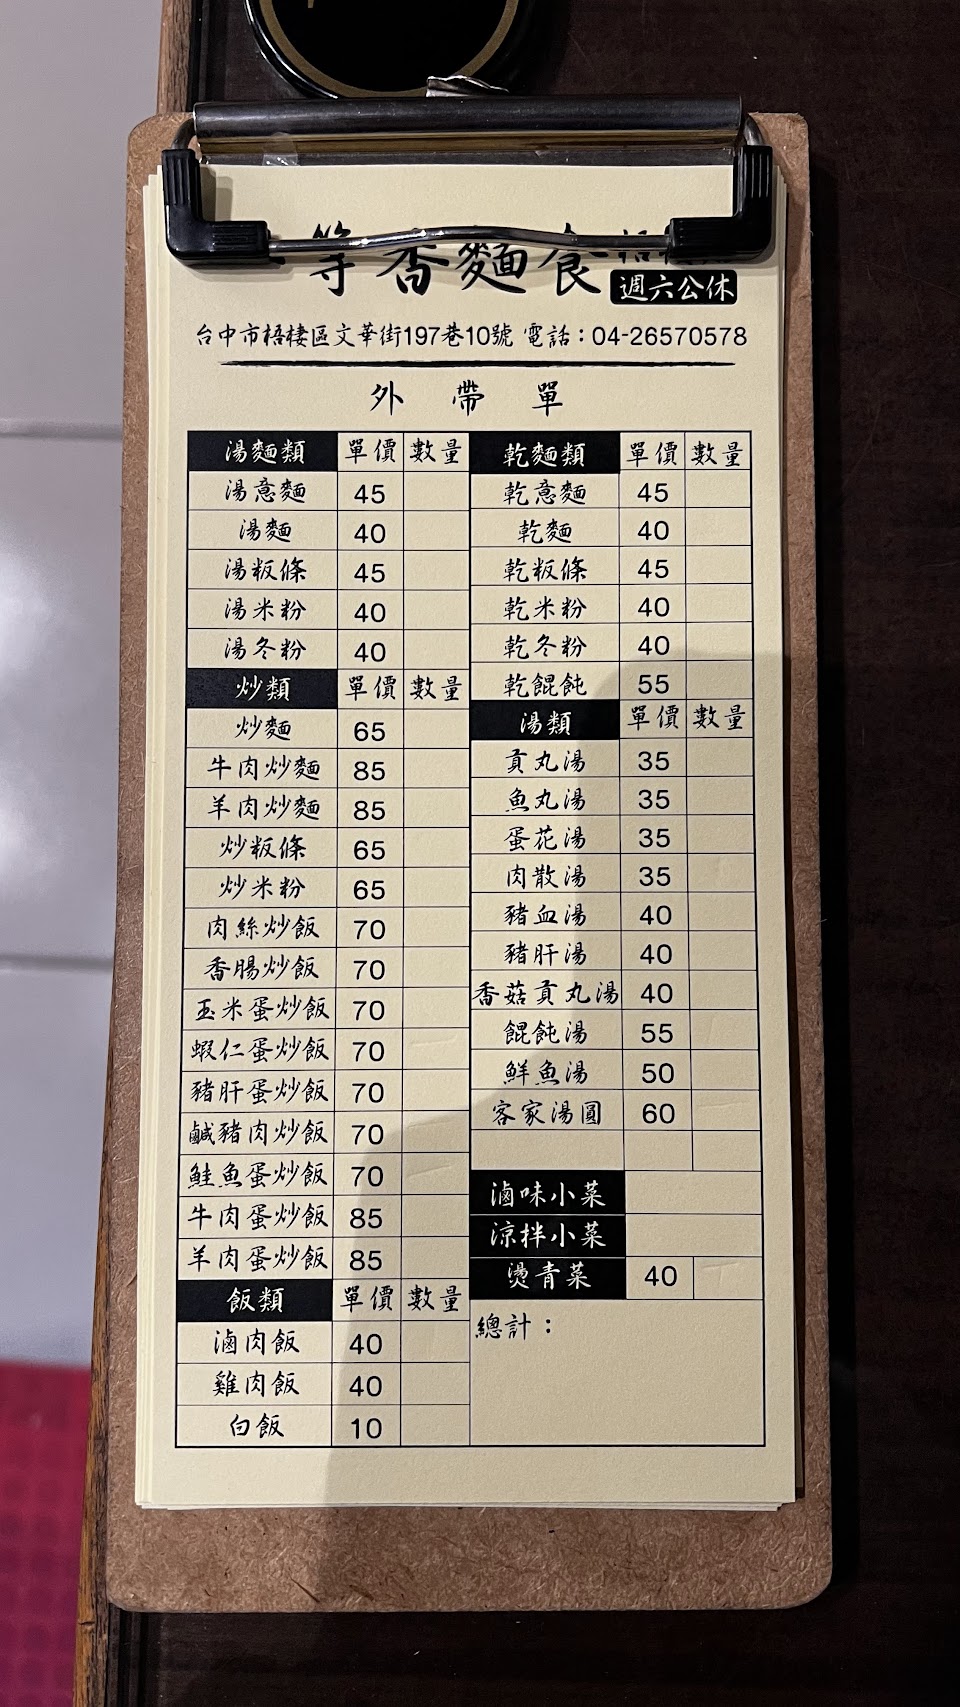 等香麵食
週六公休
台中市梧棲區文華街197巷10號 電話：04-26570578
外帶單
湯麵類 單價 數量
湯意麵 45
湯麵 40
湯粄條 45
湯米粉 40
湯冬粉 40
炒類 單價 數量
炒麵 65
牛肉炒麵 85
羊肉炒麵 85
炒粄條 65
炒米粉 65
肉絲炒飯 70
香腸炒飯 70
玉米蛋炒飯 70
蝦仁蛋炒飯 70
豬肝蛋炒飯 70
鹹豬肉炒飯 70
鮭魚蛋炒飯 70
牛肉蛋炒飯 85
羊肉蛋炒飯 85
飯類 單價 數量
滷肉飯 40
雞肉飯 40
白飯 10
乾麵類 單價 數量
乾意麵 45
乾麵 40
乾粄條 45
乾米粉 40
乾冬粉 40
乾餛飩 55
湯類 單價 數量
貢丸湯 35
魚丸湯 35
蛋花湯 35
肉散湯 35
豬血湯 40
豬肝湯 40
香菇貢丸湯 40
餛飩湯 55
鮮魚湯 50
客家湯圓 60
滷味小菜
涼拌小菜
燙青菜 40
總計：